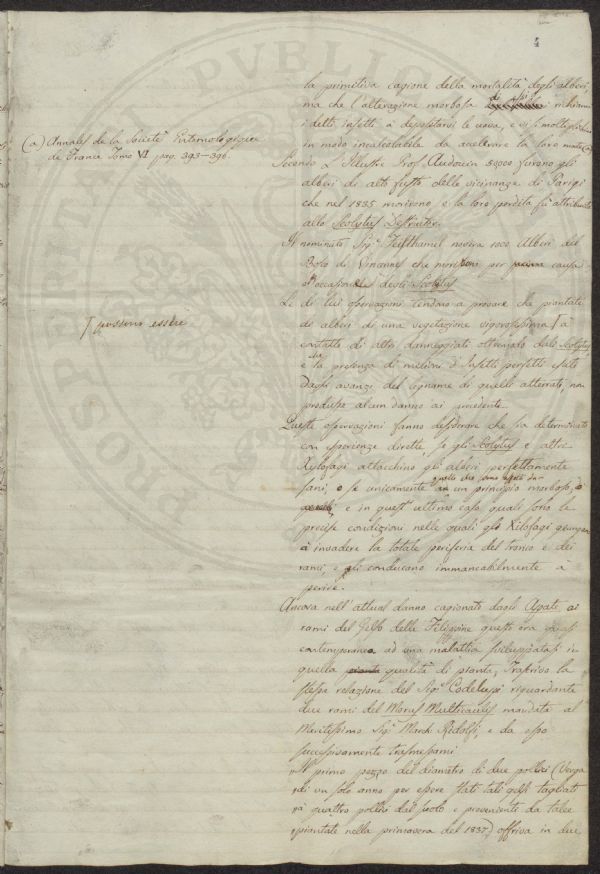 4
la primitiva cagione della mortalità degli alberi,
ma che l'alterazione morbosa di essi richiami
i detti insetti à depositarvi le uova, e vi si moltiplichino
in modo incalcolabile da accelerare la loro morte (a)
Secondo L'Illustre Prof. Audouin 50,000 furono gli
alberi di alto fusto delle vicinanze di Parigi
che nel 1835 morirono, e la loro perdita fù attribuita
allo Scolytus Destructor.
Il nominato Sig.r Feisthamel novera 1000 Alberi del
Bosco di Vincennes che morirono per causa
degli Scolytus
Le di lui osservazioni tendono a provare che piantate
di alberi di una vegetazione vigorosissima ſ à
contatto di altri danneggiati oltremodo dallo Scolytus
e la presenza di milioni d'Insetti perfetti esciti
dagli avanzi del legname di quelli atterrati, non
produsse alcun danno ai precedenti.
Queste osservazioni fanno desiderare che sia determinato
con esperienze dirette, se gli Scolytus e altri
Xylofagi attacchino gli alberi perfettamente
sani, o se unicamente quelli che sono affetti da
un principio morboso,
e in quest'ultimo caso quali sono le
precise condizioni nelle quali gli Xilofagi giungono
à invadere la totale periferia del tronco e dei
rami, e gli conducono immancabilmente à
perire.
Ancora nell'attual danno cagionato dagli Apate ai
rami del Gelso delle Filippine questo era quasi
contemporaneo ad una malattia sviluppatasi in
quella pianta qualità di piante, Trascrivo la
stessa relazione del Sig.r Codelupi riguardante
due rami del Morus Multicaulis mandata al
Meritissimo Sig.r March. Ridolfi, e da esso
successivamente trasmessami
"Il primo pezzo del diametro di due pollici (Verga
"di un solo anno per essere stati tali gelsi tagliati
"à quattro pollici dal suolo e provenienti da talee
"piantate nella primavera del 1837) offriva in due
(a) Annales de la Société Entomologique
de France Tomo VI pag. 393-396.
ſ possono essere